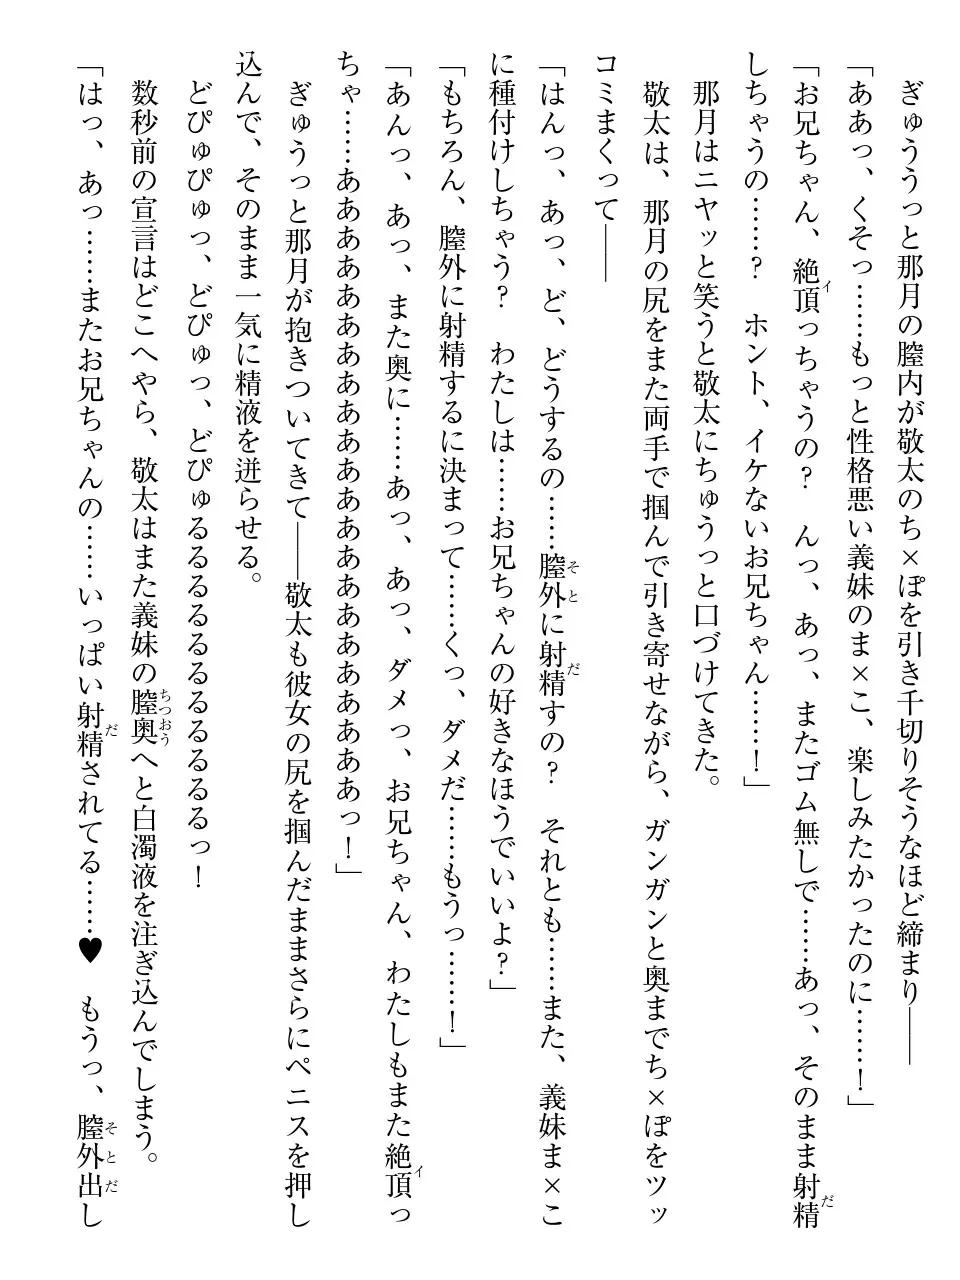 ぎゅううっと那月の膣内が敬太のち×ぽを引き千切りそうなほど締まり――
「ああっ、くそっ……もっと性格悪い義妹のま×こ、楽しみたかったのに……！」
「お兄ちゃん、絶頂っちゃうの？　んっ、あっ、またゴム無しで……あっ、そのまま射精
しちゃうの……？　ホント、イケないお兄ちゃん……！」
那月はニヤッと笑うと敬太にちゅうっと口づけてきた。
敬太は、那月の尻をまた両手で掴んで引き寄せながら、ガンガンと奥までち×ぽをツッ
コミまくって――
「はんっ、あっ、ど、どうするの……膣外に射精すの？　それとも……また、義妹ま×こ
に種付けしちゃう？　わたしは……お兄ちゃんの好きなほうでいいよ？」
「もちろん、膣外に射精するに決まって……くっ、ダメだ……もうっ……！」
「あんっ、あっ、また奥に……あっ、あっ、ダメっ、お兄ちゃん、わたしもまた絶頂っ
ちゃ……あああああああああああああああああああああっ！」
ぎゅうっと那月が抱きついてきて――敬太も彼女の尻を掴んだままさらにペニスを押し
込んで、そのまま一気に精液を迸らせる。
どぴゅぴゅっ、どぴゅっ、どぴゅるるるるるるるるるるっ！
数秒前の宣言はどこへやら、敬太はまた義妹の膣奥へと白濁液を注ぎ込んでしまう。
「はっ、あっ……またお兄ちゃんの……いっぱい射精されてる……♥　もうっ、膣外出し